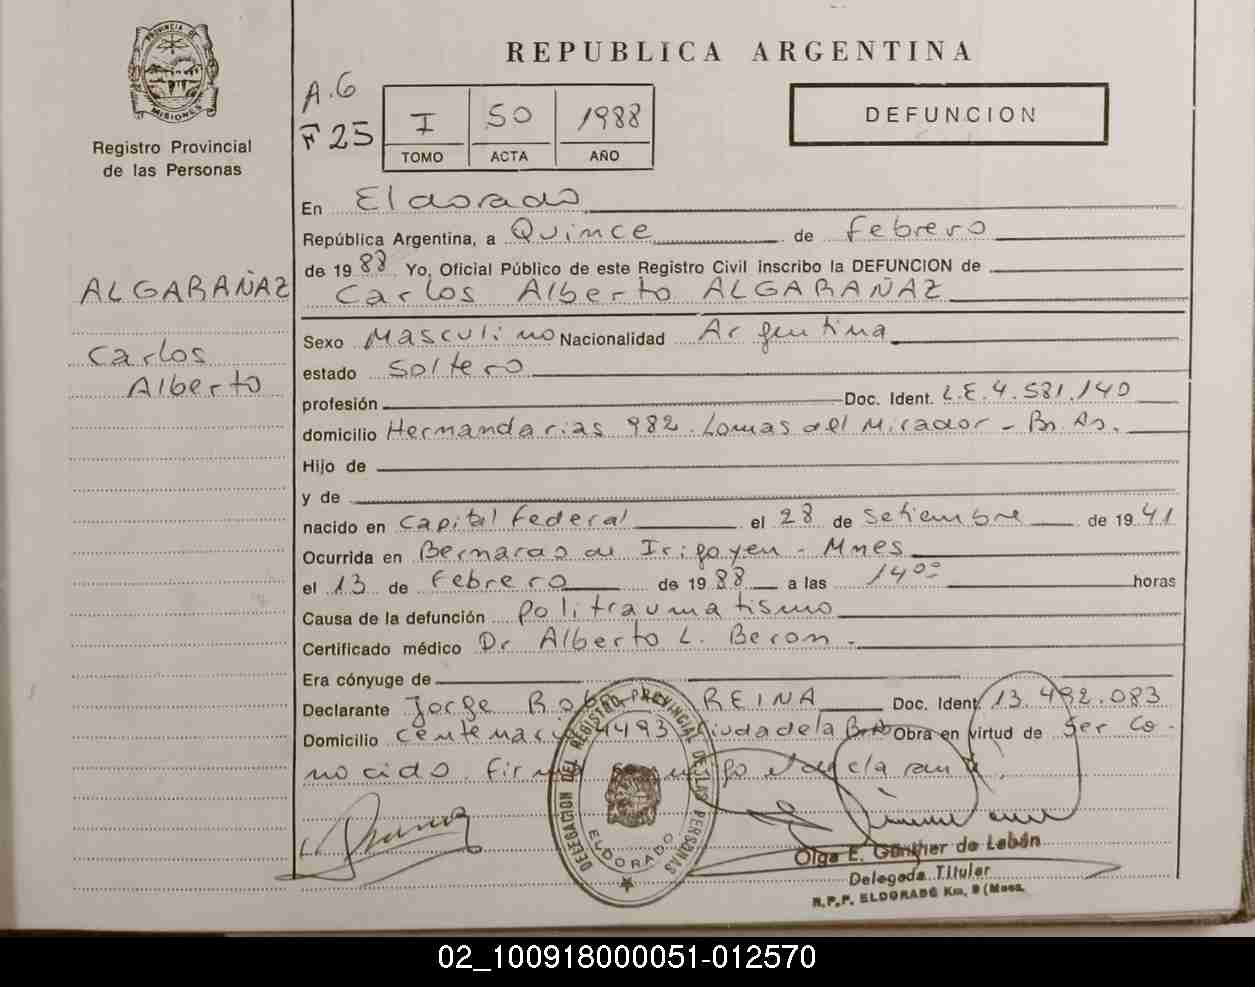 PROVINCIA DE
MISIONES
Registro Provincial
de las Personas
ALGARAÑAZ
Carlos
Alberto
REPUBLICA ARGENTINA
A.6
F 25
I 50 1988
TOMO ACTA AÑO
DEFUNCION
En Eldorado
República Argentina, a Quince de Febrero
de 1988 Yo, Oficial Público de este Registro Civil inscribo la DEFUNCION de
Carlos Alberto ALGARAÑAZ
Sexo Masculino Nacionalidad Argentina
estado Soltero
profesión Doc. Ident. L.E.4.581.140
domicilio Hernandarias 982. Lomas del Mirador - Bs. As.
Hijo de
y de
nacido en Capital Federal el 28 de Setiembre de 1941
Ocurrida en Bernardo de Irigoyen - Mnes
el 13 de Febrero de 1988 a las 14⁰⁰ horas
Causa de la defunción Politraumatismo
Certificado médico Dr Alberto L. Beron.
Era cónyuge de
Declarante Jorge REINA Doc. Ident. 13.492.083
Domicilio 4493 Ciudadela Bs As Obra en virtud de Ser Co-
nocido. el declarante.
DELEGACION DEL REGISTRO PROVINCIAL DE LAS PERSONAS
ELDORADO
Olga E. Günther de Labán
Delegada Titular
R.P.P. ELDORADO Km. 9 (Mnes.
02_100918000051-012570